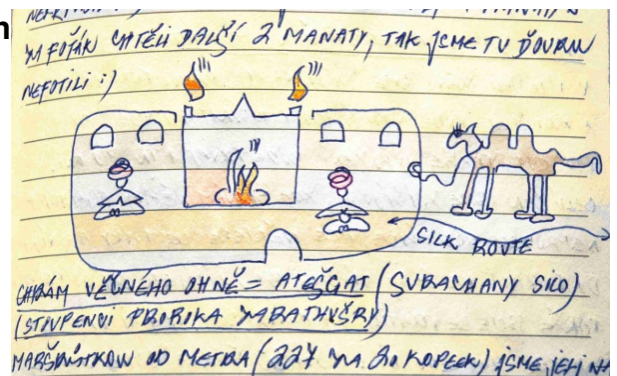 n
ZA FOŤÁK CHTĚLI DALŠÍ 2 MANATY, TAK JSME TU ĎOURU
NEFOTILI :)
SILK ROUTE
CHRÁM VĚČNÉHO OHNĚ = ATEŠGAT (SURACHANY SILO)
(STOUPENCI PROROKA ZARATHUŠRY)
MARŠRUTKOU OD METRA (227 ZA 20 KOPEEK) JSME JELI NA